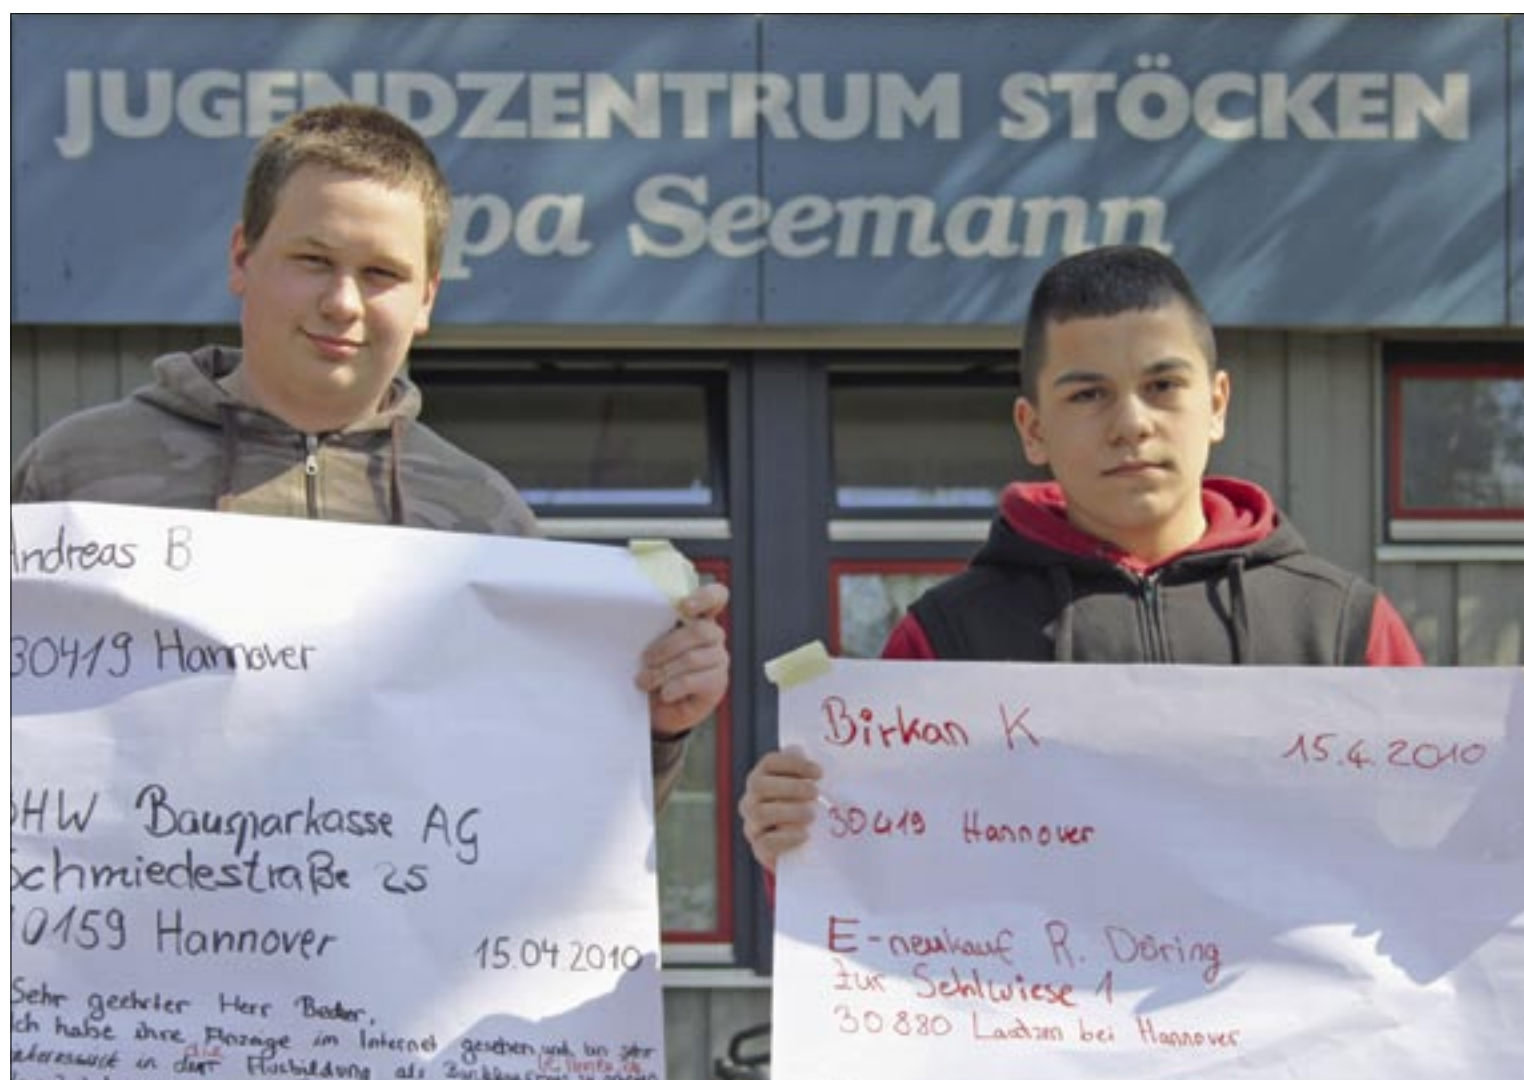 JUGENDZENTRUM STÖCKEN
pa Seemann
Andreas B
30419 Hannover
BHW Bausparkasse AG
Schmiedestraße 25
30159 Hannover
15.04.2010
Sehr geehrter Herr
ich habe ihre Anzeige im Internet gesehen und bin sehr
in die Ausbildung als
Birkan K
15.4.2010
30419 Hannover
E-neukauf R. Döring
Zur Sehlwiese 1
30880 Laatzen bei Hannover